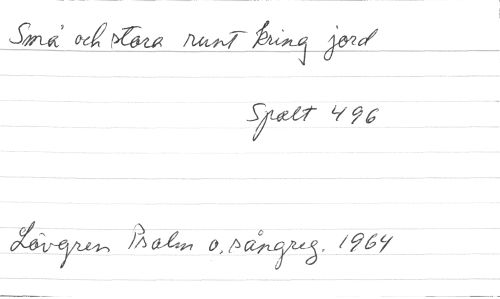 Små och stora runt kring jord
Spalt 496
Lövgren Psalm o. sångreg. 1964